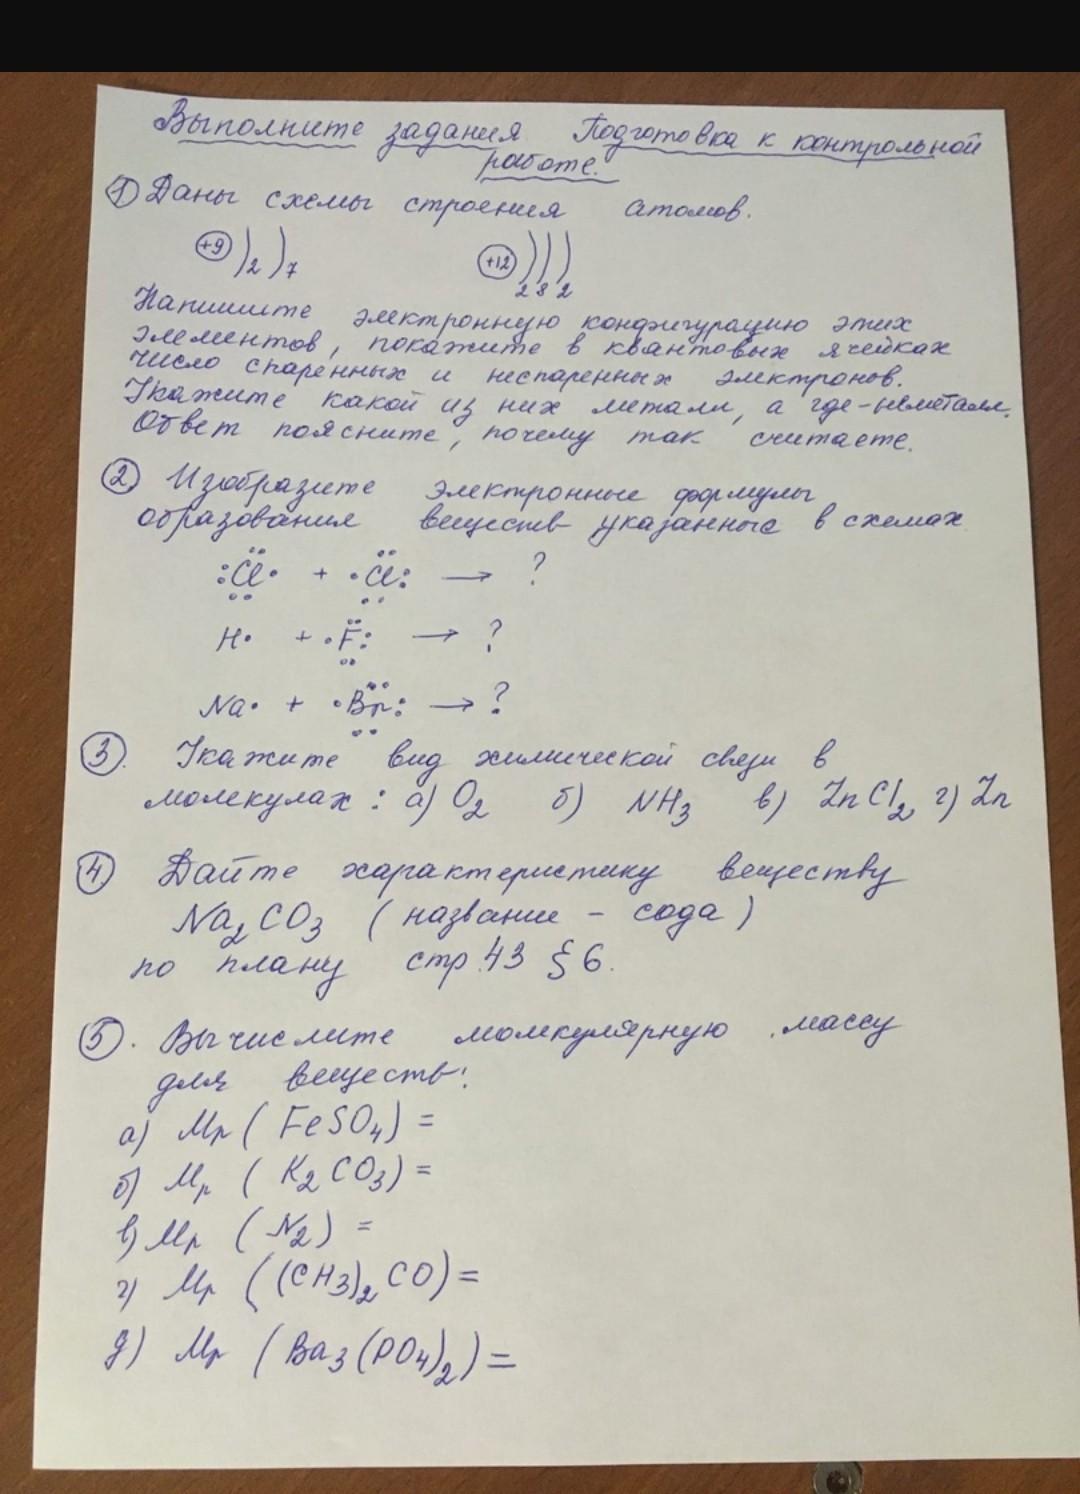 Выполните задания Подготовка к контрольной
работе.
① Даны схемы строения атомов.
+9 ) 2 ) 7 +12 ) ) ) 2 8 2
Напишите электронную конфигурацию этих
элементов, покажите в квантовых ячейках
число спаренных и неспаренных электронов.
Укажите какой из них металл, а где-неметалл.
Ответ поясните, почему так считаете.
② Изобразите электронные формулы
образования веществ указанные в схемах
:Cl· + ·Cl: → ?
H· + ·F: → ?
Na· + ·Br: → ?
③. Укажите вид химической связи в
молекулах: а) O₂ б) NH₃ в) ZnCl₂ г) Zn
④ Дайте характеристику веществу
Na₂CO₃ (название - сода)
по плану стр.43 § 6.
⑤. Вычислите молекулярную массу
для веществ:
а) Mr (FeSO₄) =
б) Mr (K₂CO₃) =
в) Mr (N₂) =
г) Mr ((CH₃)₂CO) =
д) Mr (Ba₃(PO₄)₂) =